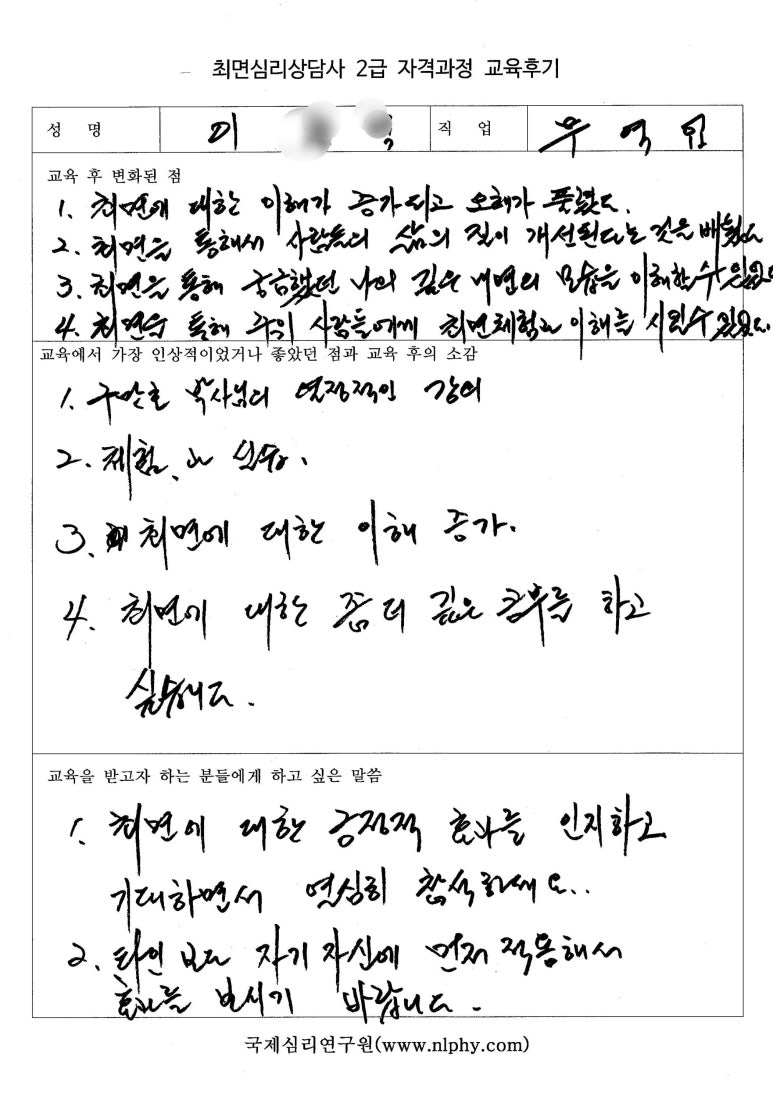 최면심리상담사 2급 자격과정 교육후기
성 명 이 직 업 무역인
교육 후 변화된 점
1. 최면에 대한 이해가 증가되고 오해가 풀렸다.
2. 최면을 통해서 사람들의 삶의 질이 개선된다는 것을 배웠다
3. 최면을 통해 궁금했던 나의 깊은 내면의 모습을 이해할 수 있었다
4. 최면을 통해 주위 사람들에게 최면체험과 이해를 시킬 수 있었다.
교육에서 가장 인상적이었거나 좋았던 점과 교육 후의 소감
1. 구만호 박사님의 열정적인 강의
2. 체험과 실습.
3. 최면에 대한 이해 증가.
4. 최면에 대한 좀 더 깊은 공부를 하고
싶습니다.
교육을 받고자 하는 분들에게 하고 싶은 말씀
1. 최면에 대한 긍정적 효과를 인지하고
기대하면서 열심히 참석하세요..
2. 타인보다 자기 자신에 먼저 적용해서
효과를 보시기 바랍니다.
국제심리연구원(www.nlphy.com)